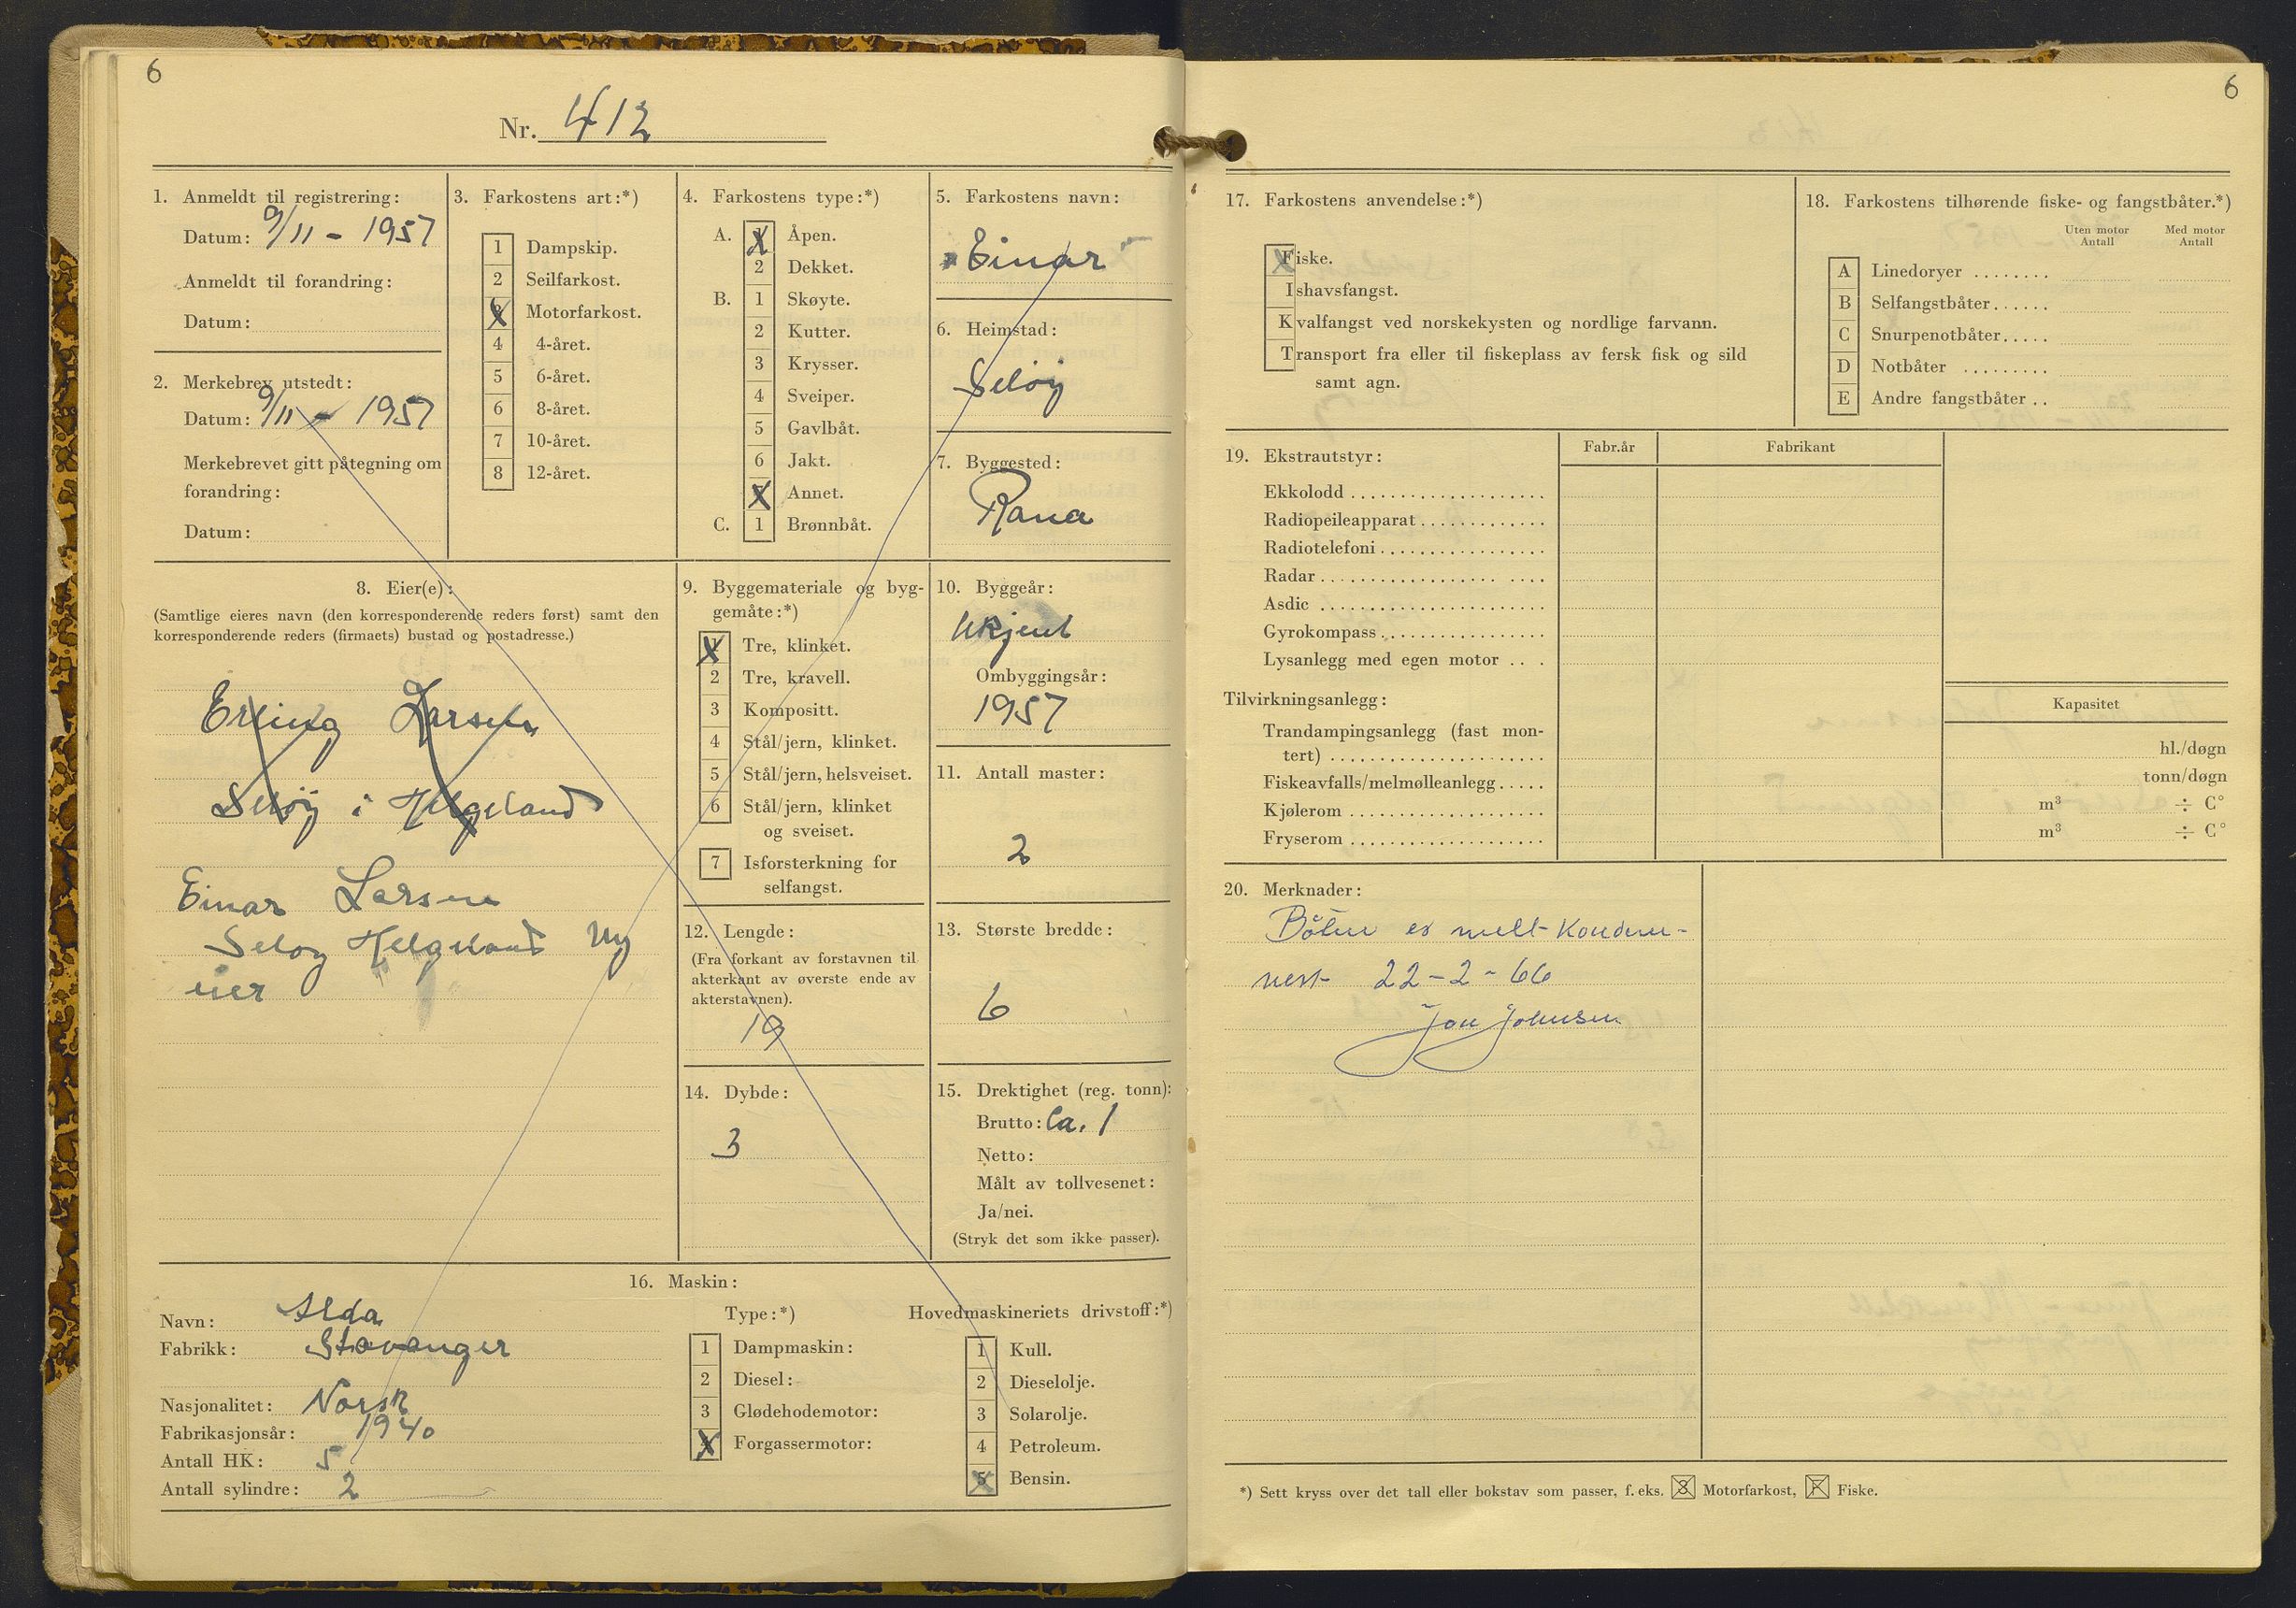 6
Nr. 412
1. Anmeldt til registrering:
Datum: 9/11 - 1957
Anmeldt til forandring:
Datum:
2. Merkebrev utstedt:
Datum: 9/11 - 1957
Merkebrevet gitt påtegning om
forandring:
Datum:
3. Farkostens art:*)
1 Dampskip.
2 Seilfarkost.
X Motorfarkost.
4 4-året.
5 6-året.
6 8-året.
7 10-året.
8 12-året.
4. Farkostens type:*)
A. X Åpen.
2 Dekket.
B. 1 Skøyte.
2 Kutter.
3 Krysser.
4 Sveiper.
5 Gavlbåt.
6 Jakt.
X Annet.
C. 1 Brønnbåt.
5. Farkostens navn:
Einar
6. Heimstad:
Seløy
7. Byggested:
Rana
8. Eier(e):
(Samtlige eieres navn (den korresponderende reders først) samt den
korresponderende reders (firmaets) bustad og postadresse.)
Erling Larsen
Seløy i Helgeland
Einar Larsen
Seløy Helgeland Ny
eier
9. Byggemateriale og byg-
gemåte:*)
X Tre, klinket.
2 Tre, kravell.
3 Kompositt.
4 Stål/jern, klinket.
5 Stål/jern, helsveiset.
6 Stål/jern, klinket
og sveiset.
7 Isforsterkning for
selfangst.
10. Byggeår:
Ukjent
Ombyggingsår:
1957
11. Antall master:
2
12. Lengde:
(Fra forkant av forstavnen til
akterkant av øverste ende av
akterstavnen).
19
13. Største bredde:
6
14. Dybde:
3
15. Drektighet (reg. tonn):
Brutto: Ca. 1
Netto:
Målt av tollvesenet:
Ja/nei.
(Stryk det som ikke passer).
16. Maskin:
Navn: Alda
Fabrikk: Stavanger
Nasjonalitet: Norsk
Fabrikasjonsår: 1940
Antall HK: 5
Antall sylindre: 2
Type:*)
1 Dampmaskin:
2 Diesel:
3 Glødehodemotor:
X Forgassermotor:
Hovedmaskineriets drivstoff:*)
1 Kull.
2 Dieselolje.
3 Solarolje.
4 Petroleum.
5 Bensin.
6
17. Farkostens anvendelse:*)
Fiske.
Ishavsfangst.
Kvalfangst ved norskekysten og nordlige farvann.
Transport fra eller til fiskeplass av fersk fisk og sild
samt agn.
18. Farkostens tilhørende fiske- og fangstbåter.*)
Uten motor Med motor
Antall Antall
A Linedoryer ........
B Selfangstbåter......
C Snurpenotbåter.....
D Notbåter .........
E Andre fangstbåter ..
19. Ekstrautstyr:
Fabr.år Fabrikant
Ekkolodd ....................
Radiopeileapparat.............
Radiotelefoni.................
Radar.................. ....
Asdic .......................
Gyrokompass.................
Lysanlegg med egen motor .. .
Tilvirkningsanlegg:
Kapasitet
Trandampingsanlegg (fast mon-
tert) ...................... hl./døgn
Fiskeavfalls/melmølleanlegg..... tonn/døgn
Kjølerom .................... m³ ÷ C°
Fryserom .................... m³ ÷ C°
20. Merknader:
Båten er melt kondem-
nert 22-2-66
Jon Johnsen
*) Sett kryss over det tall eller bokstav som passer, f. eks. 3 Motorfarkost, F Fiske.